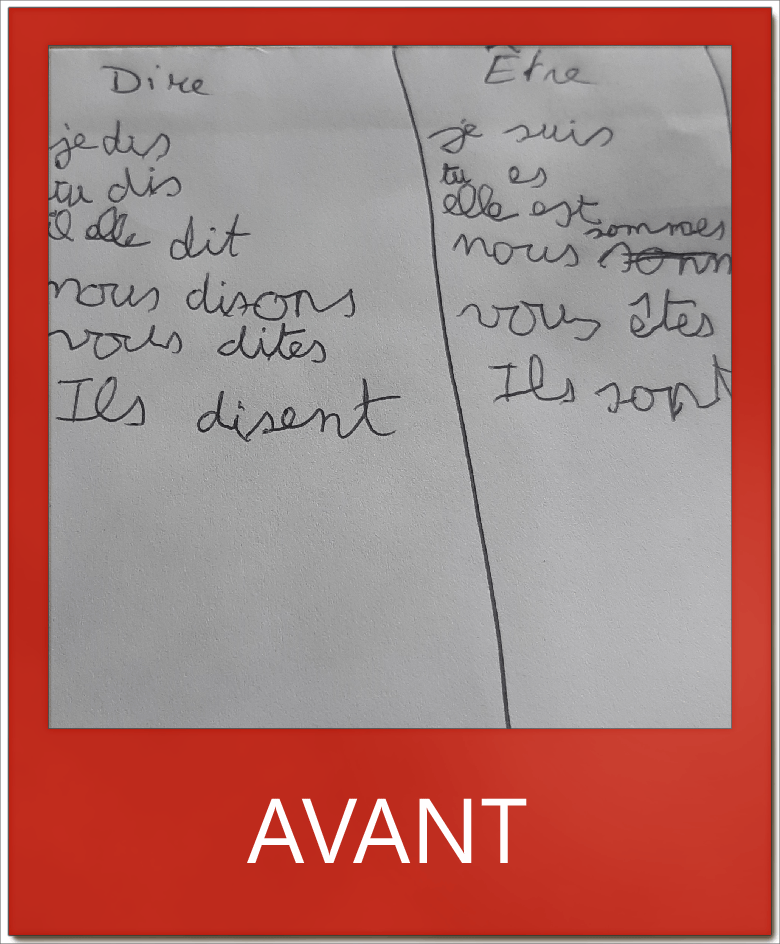 Dire
je dis
tu dis
il elle dit
nous disons
vous dites
Ils disent
Être
je suis
tu es
elle est
sommes
nous sonn
vous êtes
Ils sont
AVANT